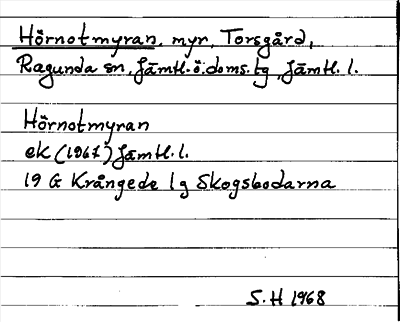 Hörnotmyran, myr, Torsgård,
Ragunda sn, Jämtl. ö: doms. tg, Jämtl. l.
Hörnotmyran
ek (1967) Jämtl. l.
19 G Krångede 1g Skogsbodarna
S. H 1968